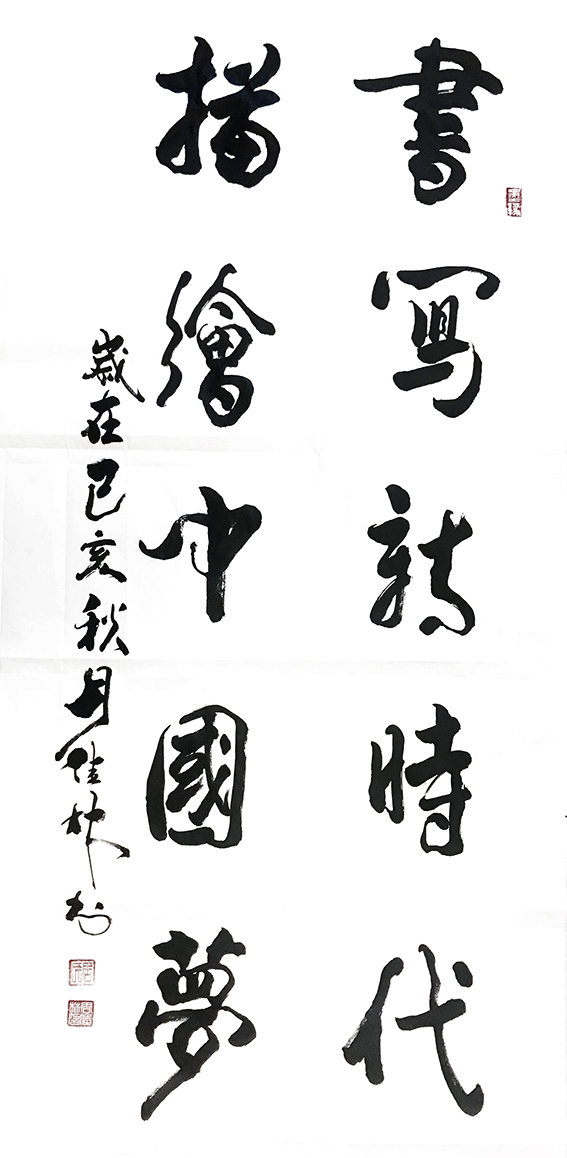 書寫新時代
描繪中國夢
歲在己亥秋月佳林书